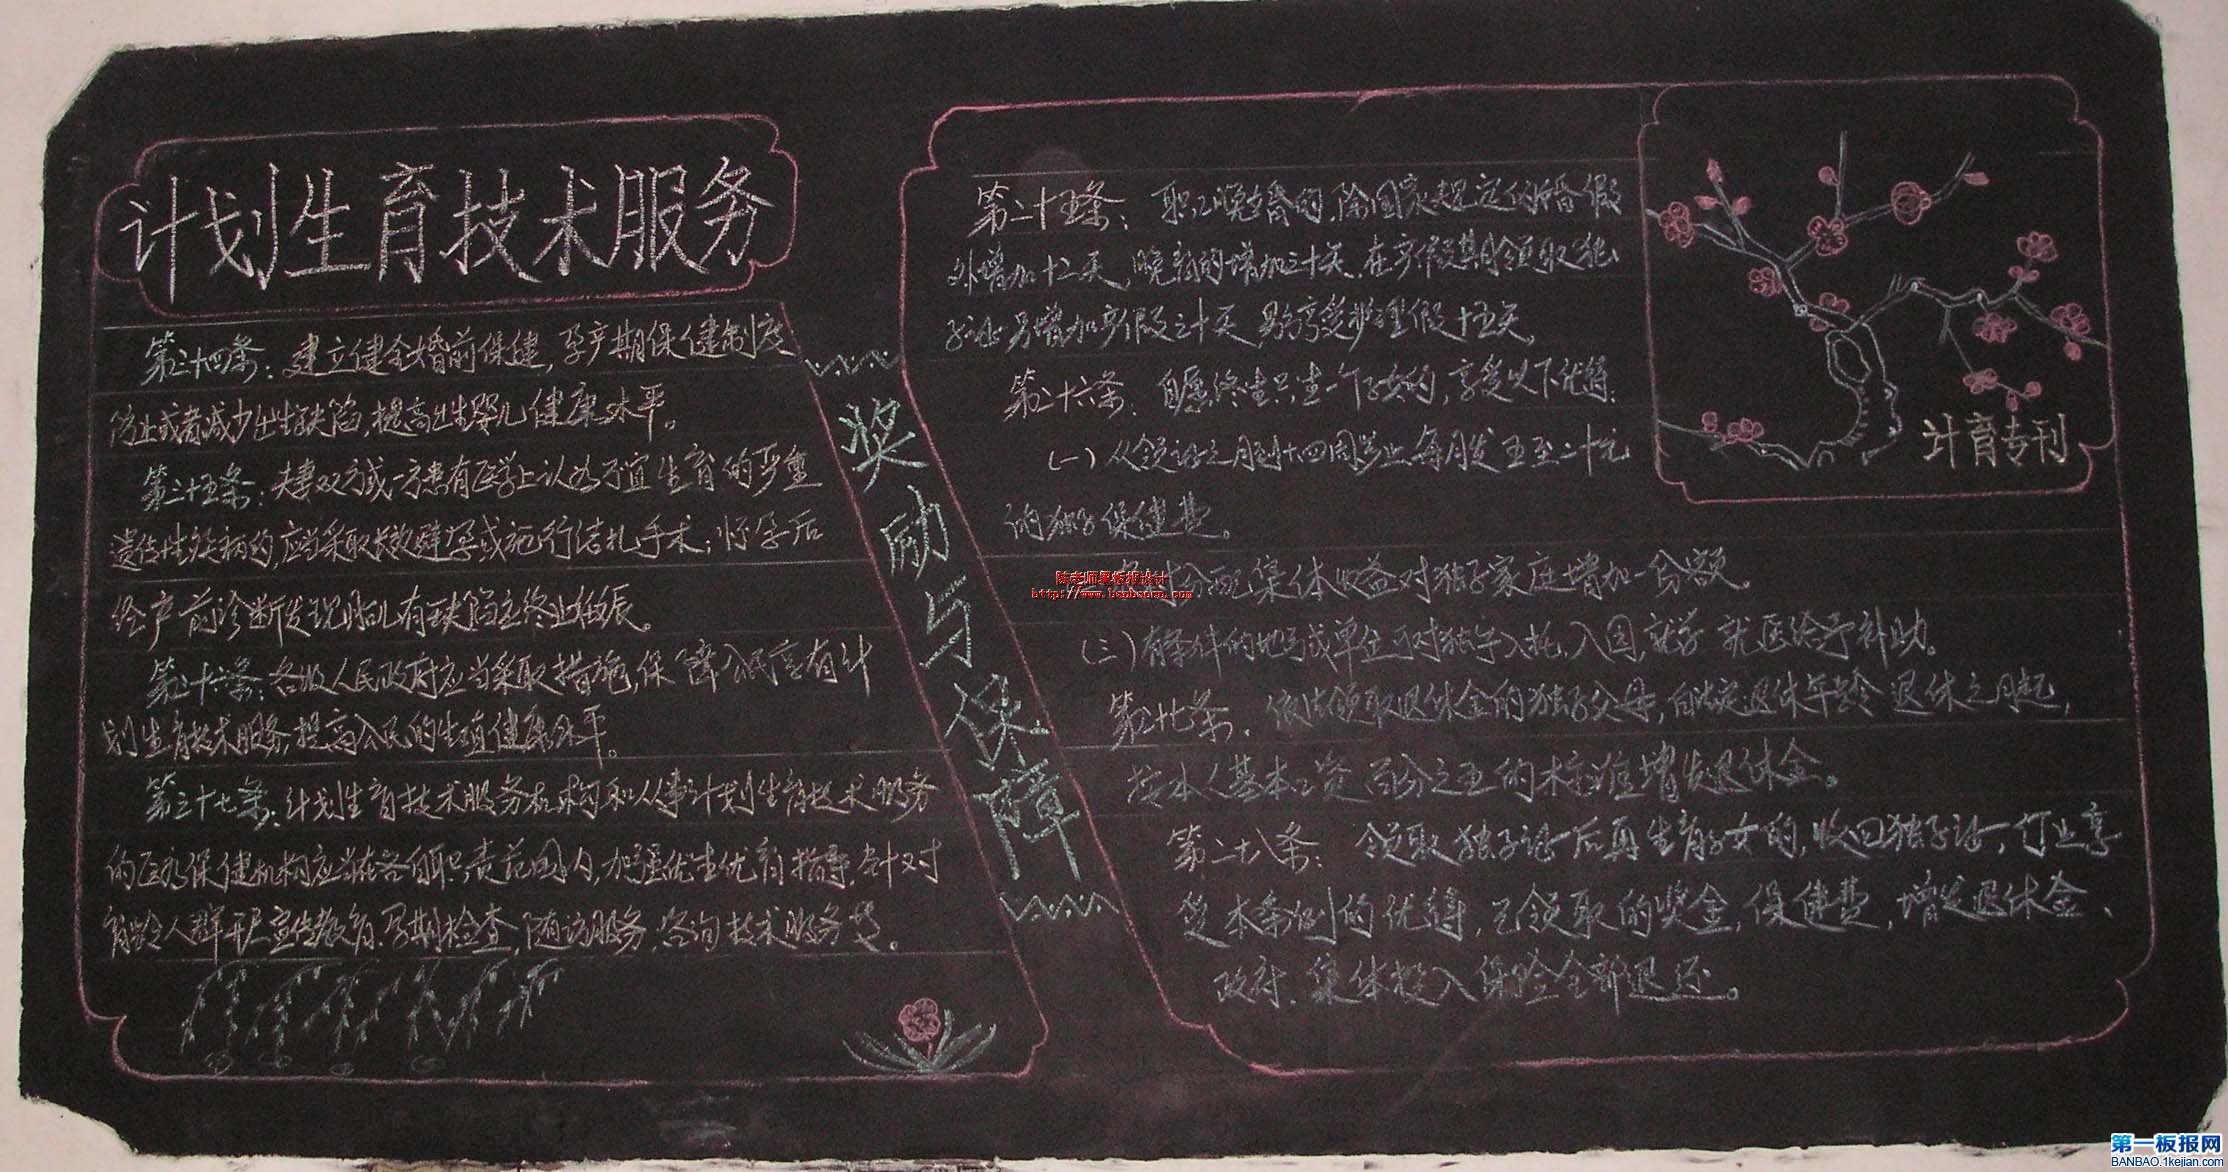 计划生育技术服务
第三十四条：建立健全婚前保健，孕产期保健制度
防止或者减少出生缺陷，提高出生婴儿健康水平。
第三十五条：夫妻双方或一方患有医学上认为不宜生育的严重
遗传性疾病的，应当采取长效避孕或施行结扎手术；怀孕后
经产前诊断发现胎儿有缺陷应终止妊娠。
第三十六条：各级人民政府应当采取措施，保障公民享有计
划生育技术服务，提高公民的生殖健康水平。
第三十七条：计划生育技术服务机构和从事计划生育技术服务
的医疗保健机构应当在各自职责范围内，加强优生优育指导，针对
育龄人群开展宣传教育、孕期检查，随访服务、咨询技术服务等。
奖励与保障
第二十五条：职工晚婚的，除国家规定的婚假
外增加十二天，晚育的增加三十天，在产假期领取独
子证另增加产假三十天 男方享受护理假十五天。
第二十六条：自愿终生只生一个子女的，享受以下优待：
（一）从领证之月到十四周岁止每月发五至二十元
的独子保健费。
分配集体收益对独子家庭增加一份额。
（三）有条件的地方或单位可对独子入托，入园，就学 就医给予补助。
第二十七条．依法领取退休金的独子父母，自法定退休年龄退休之月起，
按本人基本工资百分之五的标准增发退休金。
第二十八条：领取独子证后再生育子女的，收回独子证，停止享
受本条例的优待，已领取的奖金，保健费，增发退休金、
政府、集体投入保险全部退还。
计育专刊
陈老师黑板报设计
http://www.banbaocn.com
第一板报网
BANBAO.1kejian.com